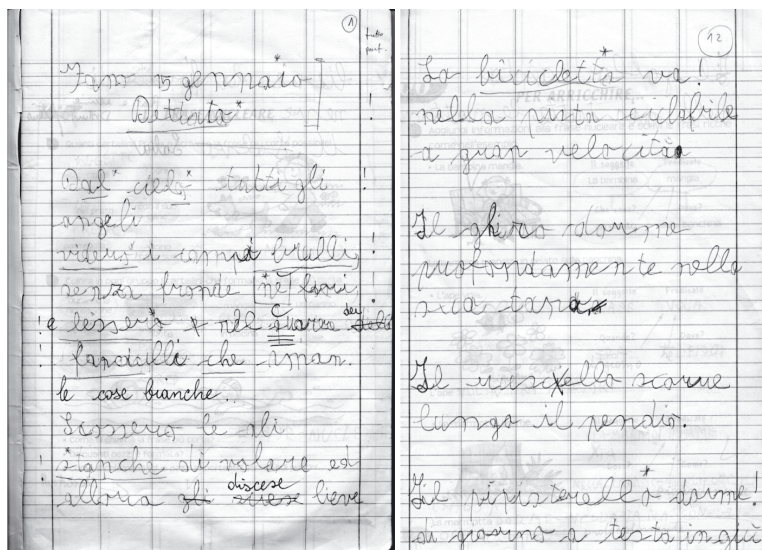 1
tutto
Fano 15 gennaio
Dettato
Dal cielo tutti gli
angeli
videro i campi brulli
senza fronde nè fiori
e lessero nel cuore dei
fanciulli che aman
le cose bianche..
Scossero le ali
stanche di volare ed
allora discese lieve
12
La bicicletta va!
nella pista ciclabile
a gran velocità
Il ghiro dorme
profondamente nella
sua tana
Il ruscello scorre
lungo il pendio.
Il pipistrello dorme!
di giorno a testa ingiù